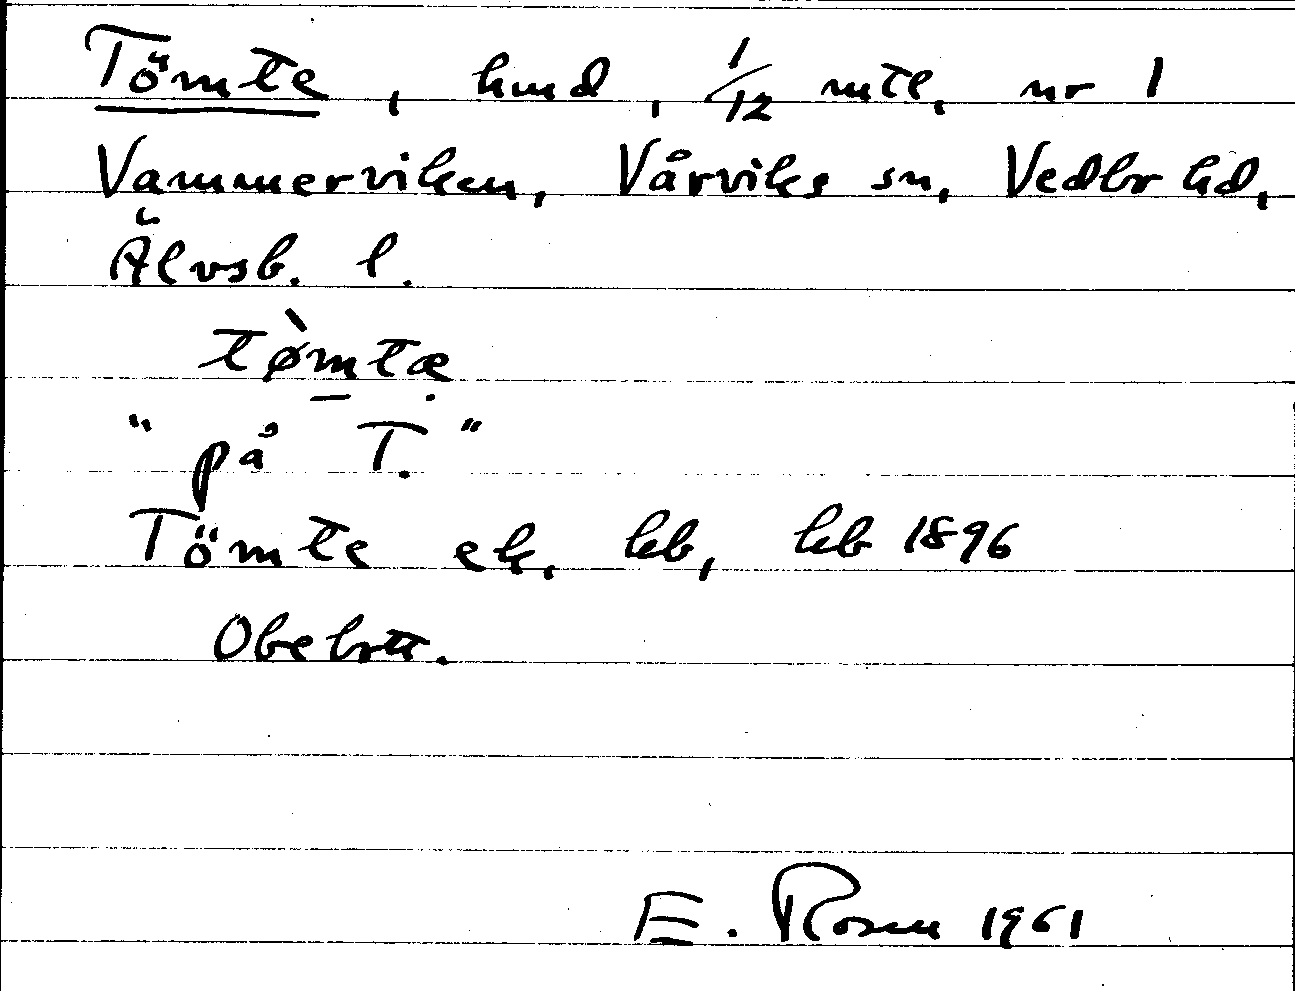 Tömte, hmd, 1/12 mtl, nr 1
Vammerviken, Vårviks sn, Vedbo hd,
Älvsb. l.
tø̀mtæ
"på T."
Tömte ek, kb, hb 1896
Obebott.
E. Rosen 1961